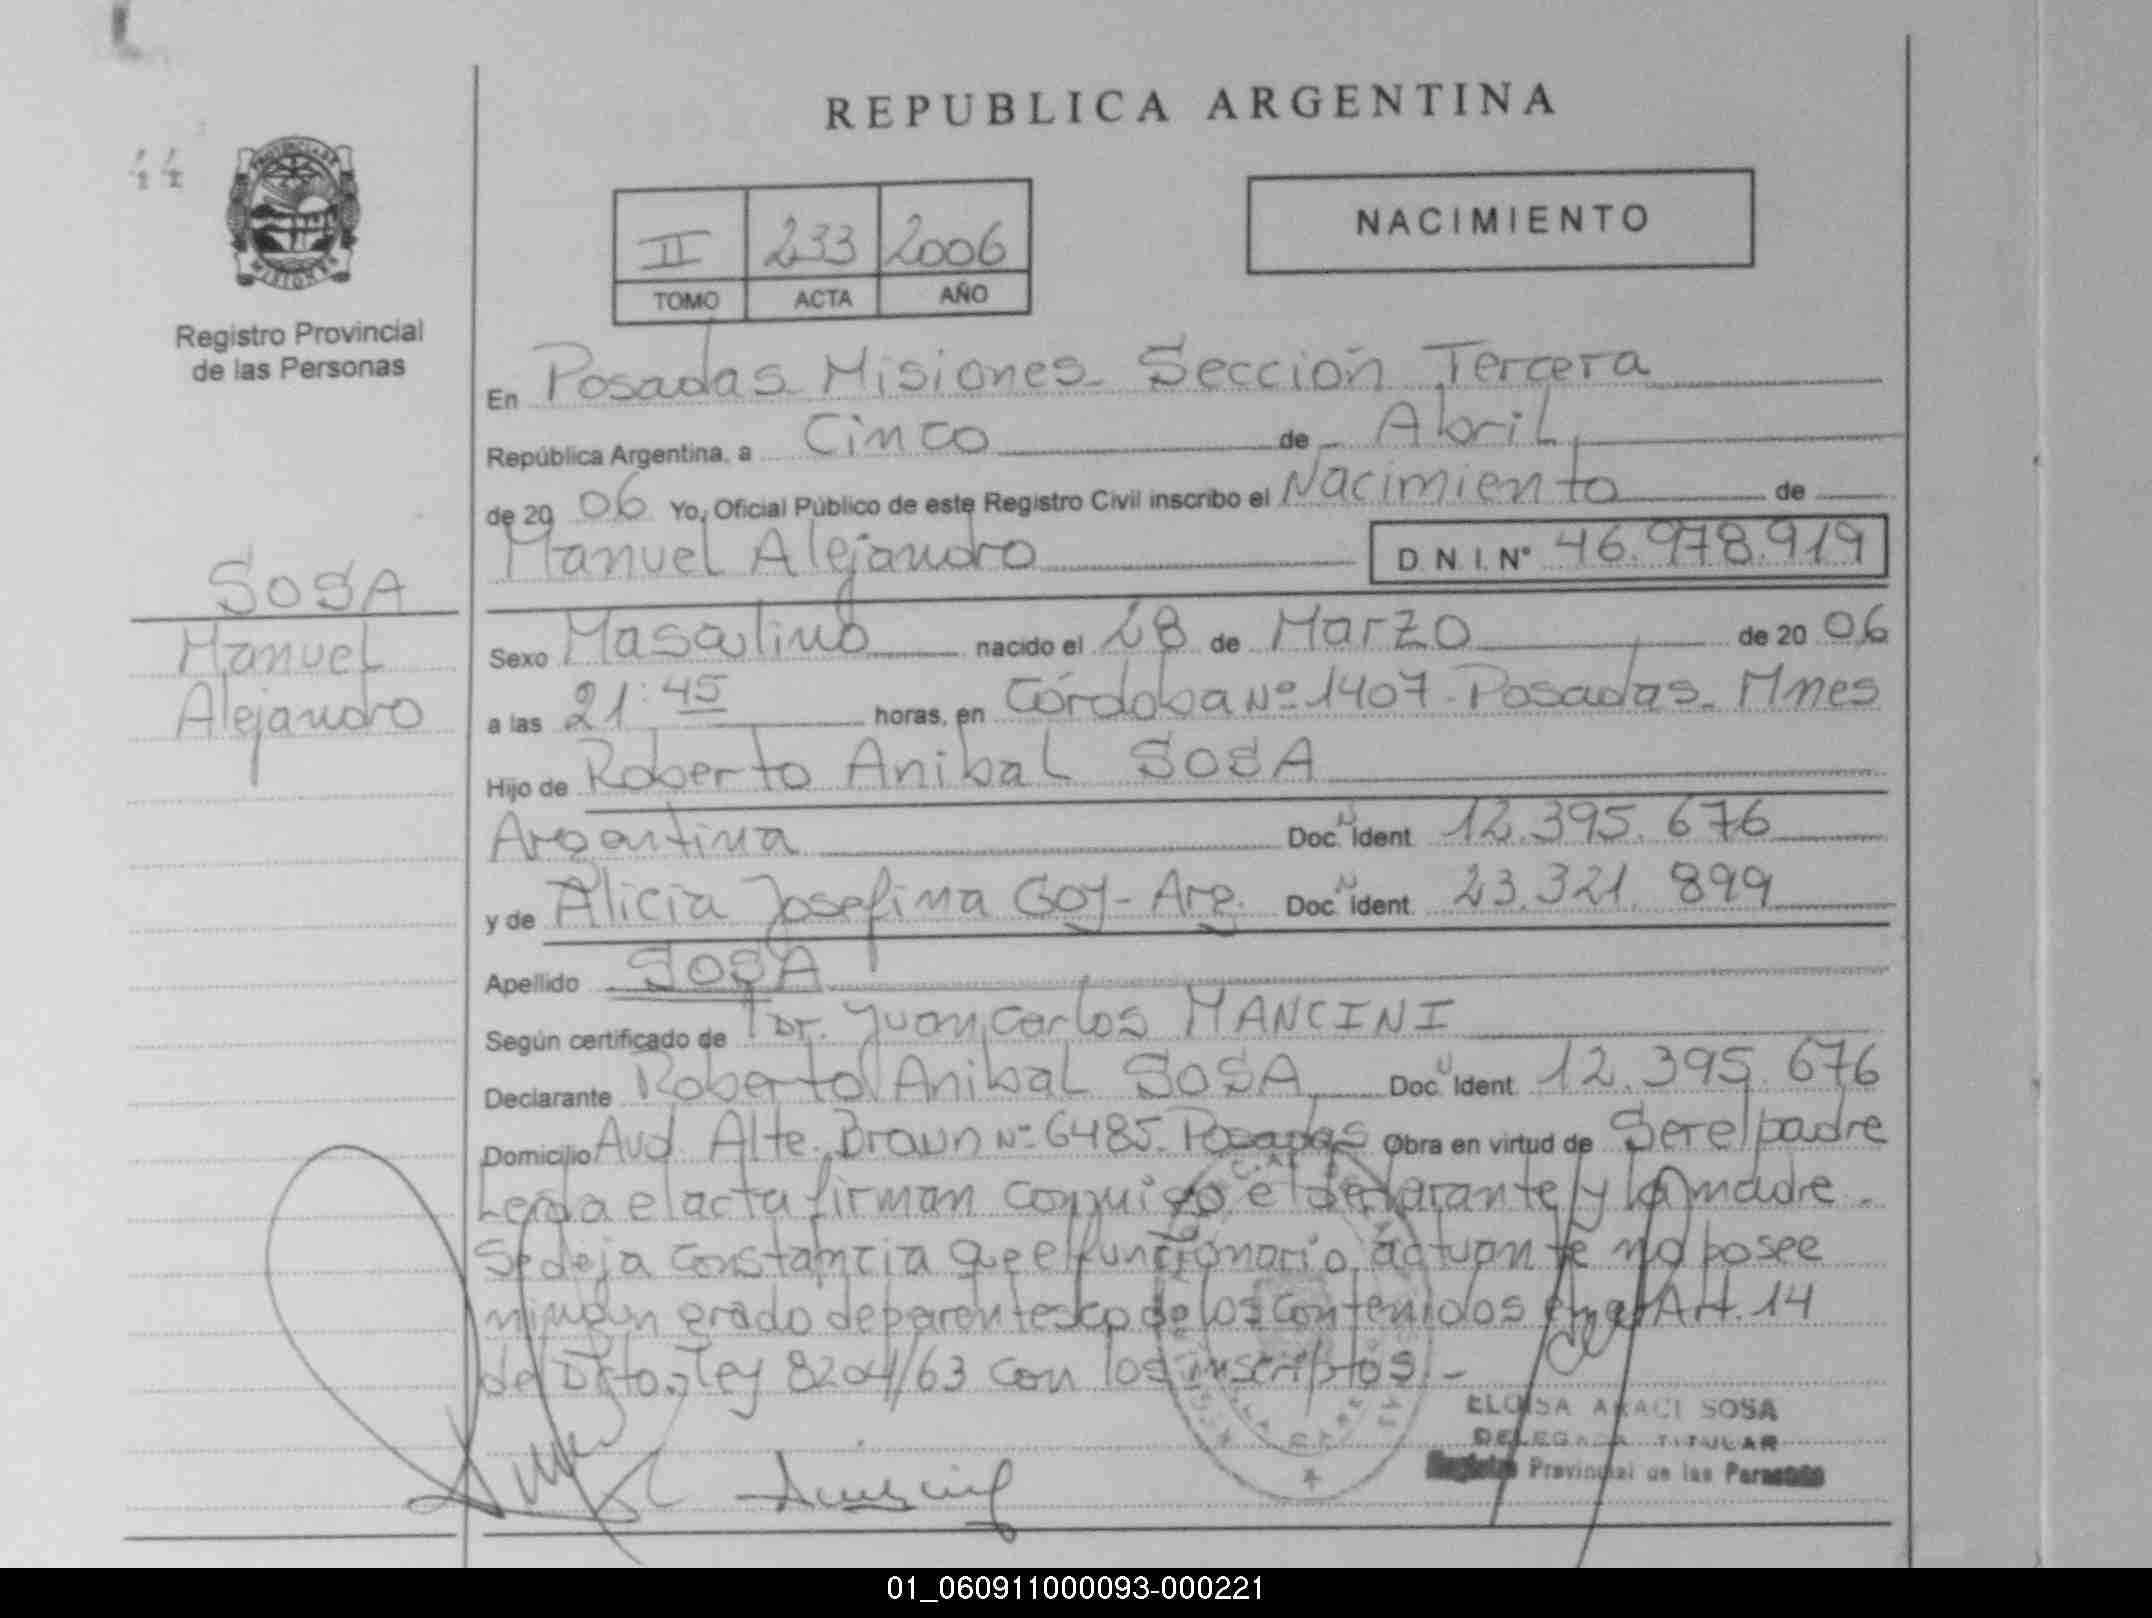 REPUBLICA ARGENTINA
PROVINCIA DE
MISIONES
Registro Provincial
de las Personas
II 233 2006
TOMO ACTA AÑO
NACIMIENTO
En Posadas Misiones Sección Tercera
República Argentina, a Cinco de Abril
de 20 06 Yo, Oficial Público de este Registro Civil inscribo el Nacimiento de
Manuel Alejandro D. N. I. N° 46.978.919
SOSA
Manuel
Alejandro
Sexo Masculino nacido el 28 de Marzo de 20 06
a las 21:45 horas, en Córdoba Nº 1407 - Posadas - Mnes
Hijo de Roberto Anibal SOSA
Argentina Doc. Ident. 12.395.676
y de Alicia Josefina Goy - Arg. Doc. Ident. 23.321.899
Apellido SOSA
Según certificado de Dr. Juan Carlos MANCINI
Declarante Roberto Anibal SOSA Doc. Ident. 12.395.676
Domicilio Avd. Alte. Brown Nº 6485. Posadas Obra en virtud de Ser el padre
Leida el acta firman conmigo el declarante y la madre.
Se deja constancia que el funcionario actuante no posee
ningun grado de parentesco de los contenidos en el Art. 14
del Dcto. Ley 8204/63 con los inscriptos. -
ELOISA ARACI SOSA
DELEGADA TITULAR
Registro Provincial de las Personas
01_060911000093-000221